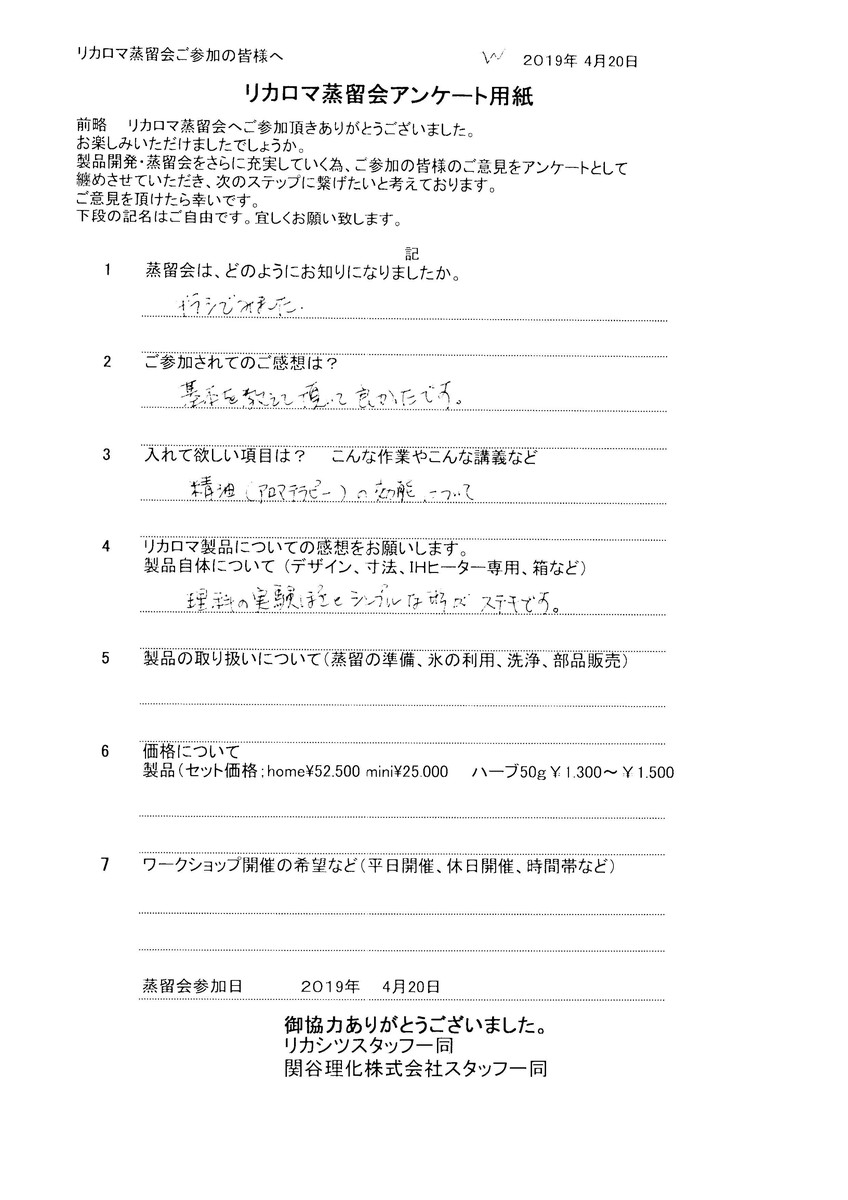 リカロマ蒸留会ご参加の皆様へ
W 2019年 4月20日
リカロマ蒸留会アンケート用紙
前略　リカロマ蒸留会へご参加頂きありがとうございました。
お楽しみいただけましたでしょうか。
製品開発・蒸留会をさらに充実していく為、ご参加の皆様のご意見をアンケートとして
纏めさせていただき、次のステップに繋げたいと考えております。
ご意見を頂けたら幸いです。
下段の記名はご自由です。宜しくお願い致します。
記
1 蒸留会は、どのようにお知りになりましたか。
チラシでみました。
2 ご参加されてのご感想は？
基本を教えて頂いて良かったです。
3 入れて欲しい項目は？　こんな作業やこんな講義など
精油(アロマテラピー)の効能について
4 リカロマ製品についての感想をお願いします。
製品自体について（デザイン、寸法、IHヒーター専用、箱など）
理科の実験ぽさとシンプルな形がステキです。
5 製品の取り扱いについて（蒸留の準備、氷の利用、洗浄、部品販売）
6 価格について
製品（セット価格；home¥52.500 mini¥25.000　ハーブ50g￥1.300～￥1.500
7 ワークショップ開催の希望など（平日開催、休日開催、時間帯など）
蒸留会参加日　2019年　4月20日
御協力ありがとうございました。
リカシツスタッフ一同
関谷理化株式会社スタッフ一同